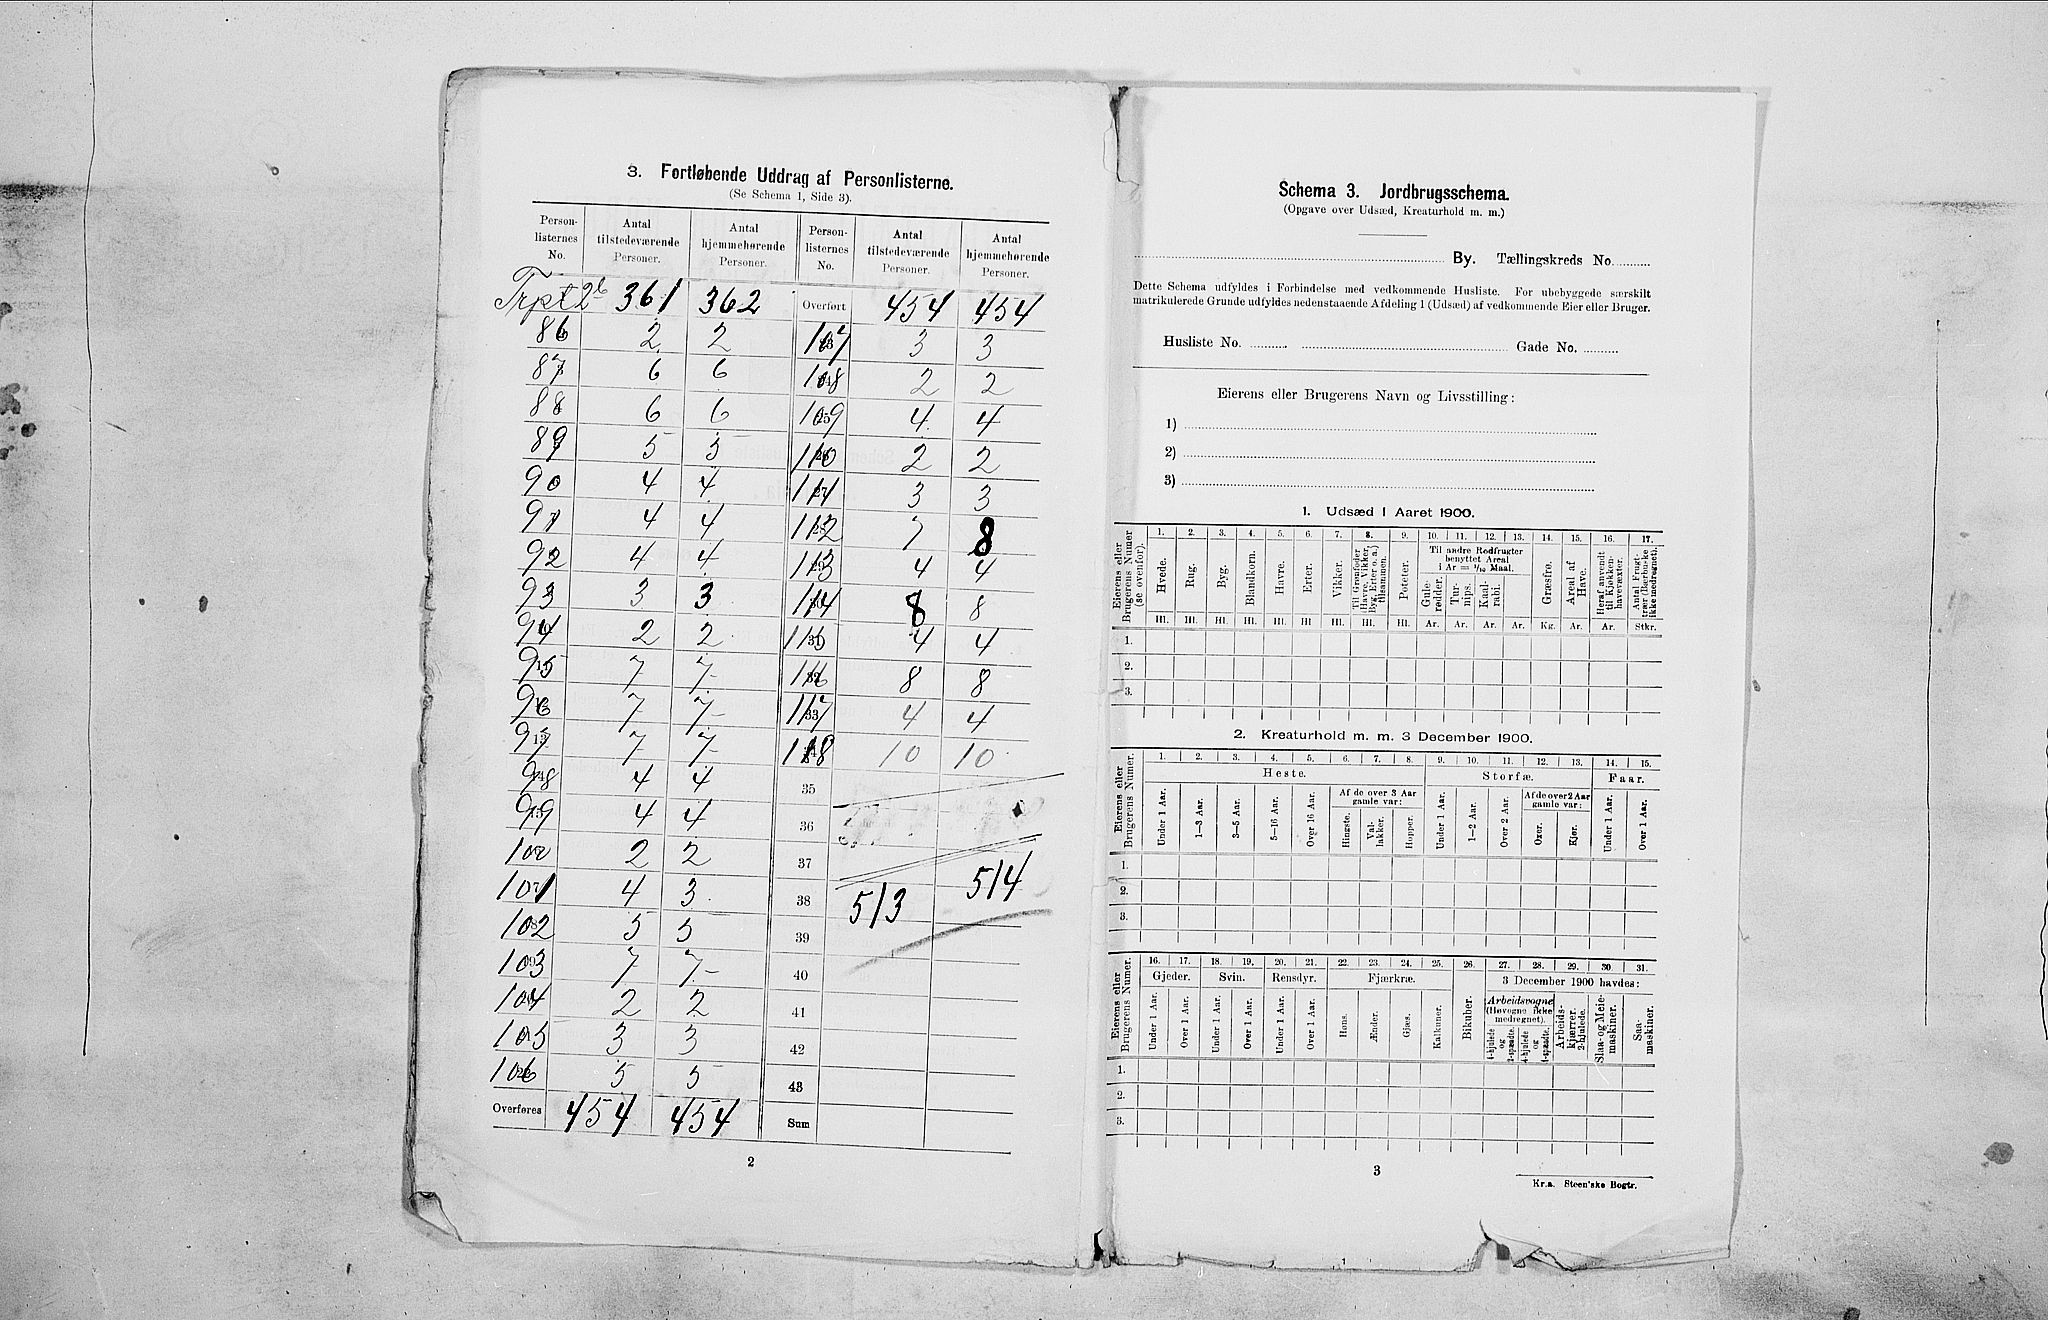 3. Fortløbende Uddrag af Personlisterne.
(Se Schema 1, Side 3).
Person-listernes No. | Antal tilstedeværende Personer. | Antal hjemmehørende Personer. | Person-listernes No. | Antal tilstedeværende Personer. | Antal hjemmehørende Personer.
Trpt 2b 361 362 Overført 454 454
86 2 2 107 3 3
87 6 6 108 2 2
88 6 6 109 4 4
89 5 5 110 2 2
90 4 4 111 3 3
91 4 4 112 7 8
92 4 4 113 4 4
93 3 3 114 8 8
94 2 2 115 4 4
95 7 7 116 8 8
96 7 7 117 4 4
97 7 7 118 10 10
98 4 4 35
99 4 4 36
100 2 2 37
101 4 3 38 513 514
102 5 5 39
103 7 7 40
104 2 2 41
105 3 3 42
106 5 5 43
Overføres 454 454 Sum
2
Schema 3. Jordbrugsschema.
(Opgave over Udsæd, Kreaturhold m. m.)
By. Tællingskreds No.
Dette Schema udfyldes i Forbindelse med vedkommende Husliste. For ubebyggede særskilt
matrikulerede Grunde udfyldes nedenstaaende Afdeling 1 (Udsæd) af vedkommende Eier eller Bruger.
Husliste No. Gade No.
Eierens eller Brugerens Navn og Livsstilling:
1)
2)
3)
1. Udsæd i Aaret 1900.
Eierens eller Brugerens Numer (se ovenfor).
1. 2. 3. 4. 5. 6. 7. 8. 9. 10. 11. 12. 13. 14. 15. 16. 17.
Hvede. Rug. Byg. Blandkorn. Havre. Erter. Vikker. Til Grønfoder (Havre, Vikker, Byg, Erter o. a.) tilsammen. Poteter. Til andre Rodfrugter benyttet Areal i Ar = 1/10 Maal. Gulerødder. Turnips. Kaalrabi. Græsfrø. Areal af Have. Heraf anvendt til Kjøkkenhavevæxter. Antal Frugttrær (Bærbuske ikke medregnet).
Hl. Hl. Hl. Hl. Hl. Hl Hl. Hl. Hl. Ar. Ar. Ar. Ar. Kg. Ar. Ar. Stkr.
1.
2.
3.
2. Kreaturhold m. m. 3 December 1900.
Eierens eller Brugerens Numer.
1. 2. 3. 4. 5. 6. 7. 8. 9. 10. 11. 12. 13. 14. 15.
Heste. Storfæ. Faar.
Af de over 3 Aar gamle var: Af de over 2 Aar gamle var:
Under 1 Aar. 1—3 Aar. 3—5 Aar. 5—16 Aar. Over 16 Aar. Hingste. Vallakker. Hopper. Under 1 Aar. 1—2 Aar. Over 2 Aar. Oxer. Kjør. Under 1 Aar. Over 1 Aar.
1.
2.
3.
Eierens eller Brugerens Numer.
16. 17. 18. 19. 20. 21. 22. 23. 24. 25. 26. 27. 28. 29. 30. 31.
Gjeder. Svin. Rensdyr. Fjærkræ. Bikuber. 3 December 1900 havdes:
Under 1 Aar. Over 1 Aar. Under 1 Aar. Over 1 Aar. Under 1 Aar. Over 1 Aar. Høns. Ænder. Gjæs. Kalkuner. Arbeidsvogne (Høvogne ikke medregnet). 4-hjulede og 2-spændte. 4-hjulede og 1-spændte. Arbeidskjærrer. 2-hjulede. Slaa- og Meiemaskiner. Saamaskiner.
1.
2.
3.
3
Kr.a. Steen'ske Bogtr.